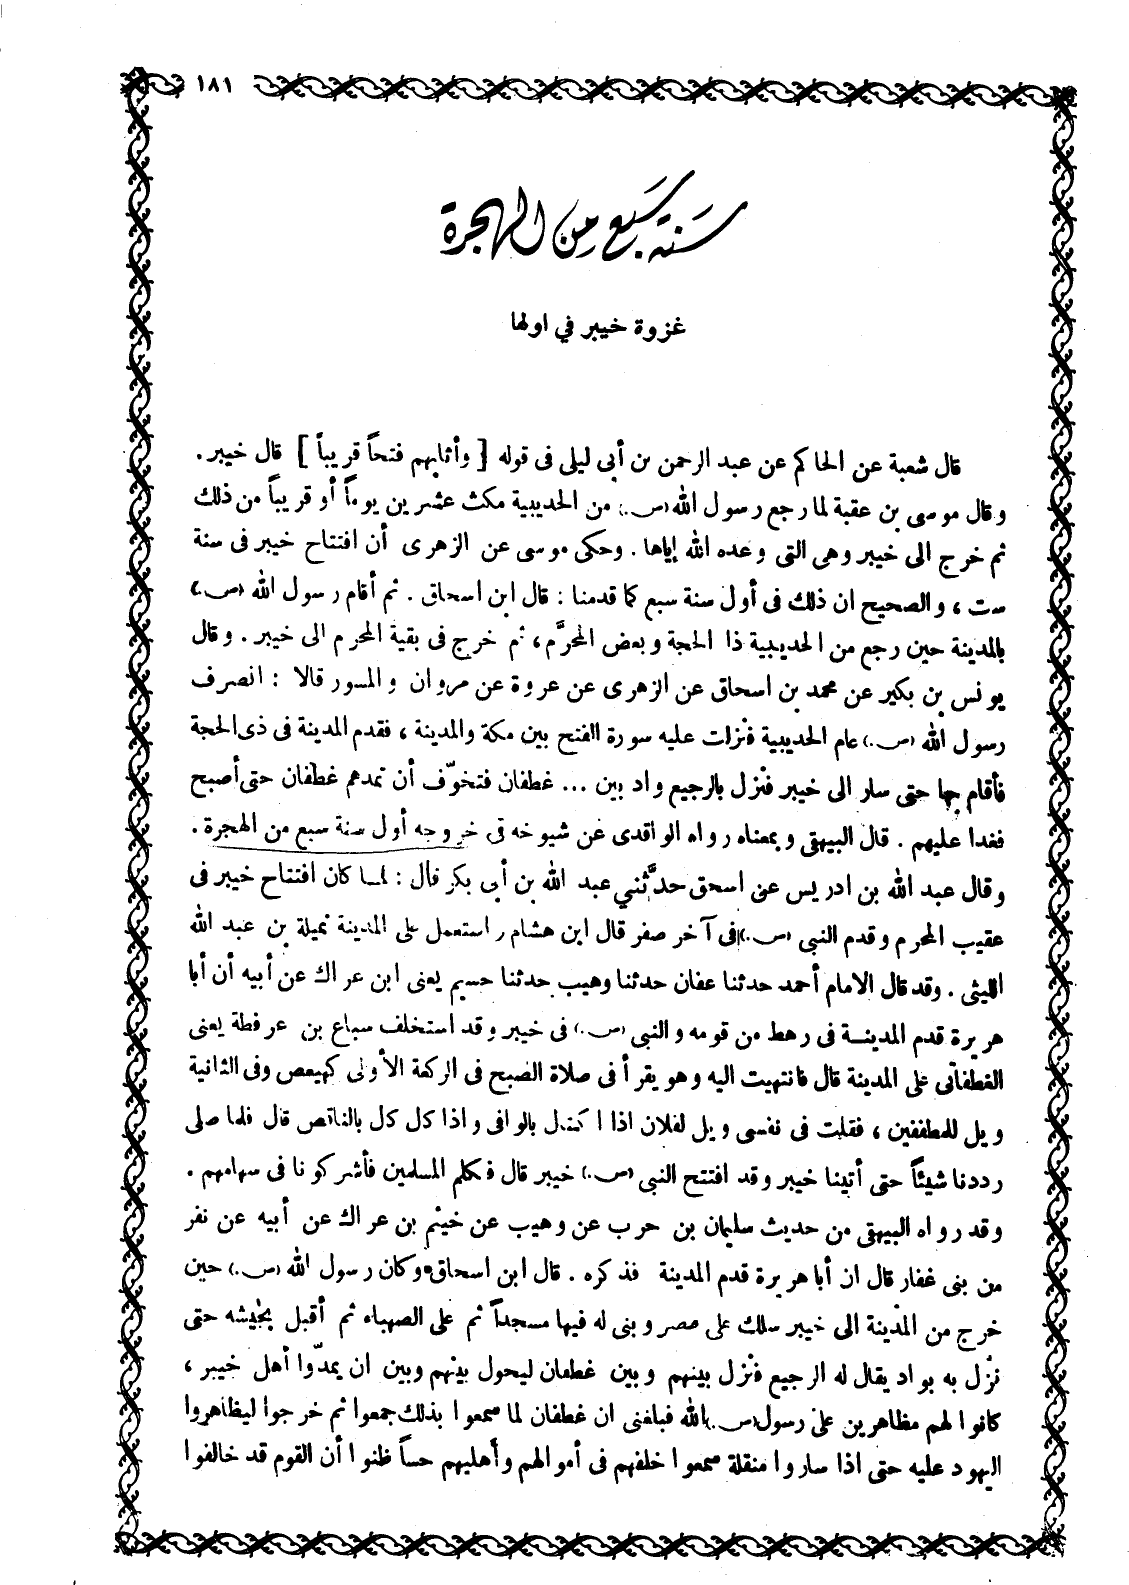 ١٨١
سنة سبع من الهجرة
غزوة خيبر في اولها
قال شعبة عن الحاكم عن عبد الرحمن بن أبي ليلى فى قوله [ وأثابهم فتحاً قريباً ] قال خيبر .
وقال موسى بن عقبة لما رجع رسول الله (ص.) من الحديبية مكث عشرين يوماً أو قريباً من ذلك
ثم خرج الى خيبر وهى التى وعده الله إياها . وحكى موسى عن الزهرى أن افتتاح خيبر فى سنة
ست ، والصحيح ان ذلك فى أول سنة سبع كما قدمنا : قال ابن اسحاق . ثم أقام رسول الله (ص.)
بالمدينة حين رجع من الحديبية ذا الحجة وبعض المحرَّم ، ثم خرج فى بقية المحرم الى خيبر . وقال
يونس بن بكير عن محمد بن اسحاق عن الزهرى عن عروة عن مروان والمسور قالا : انصرف
رسول الله (ص.) عام الحديبية فنزلت عليه سورة الفتح بين مكة والمدينة ، فقدم المدينة فى ذى الحجة
فأقام بها حتى سار الى خيبر فنزل بالرجيع واد بين ... غطفان فتخوّف أن تمدهم غطفان حتى أصبح
فغدا عليهم . قال البيهقى وبمعناه رواه الواقدى عن شيوخه فى خروجه أول سنة سبع من الهجرة .
وقال عبد الله بن ادريس عن اسحق حدَّثني عبد الله بن أبي بكر قال : لما كان افتتاح خيبر فى
عقيب المحرم وقدم النبى (ص.) فى آخر صفر قال ابن هشام واستعمل على المدينة نميلة بن عبد الله
الليثى . وقد قال الامام أحمد حدثنا عفان حدثنا وهيب حدثنا خسيم يعنى ابن عراك عن أبيه أن أبا
هريرة قدم المدينة فى رهط من قومه والنبى (ص.) فى خيبر وقد استخلف سباع بن عرفطة يعنى
الغطفانى على المدينة قال فانتهيت اليه وهو يقرأ فى صلاة الصبح فى الركعة الأولى كهيعص وفى الثانية
ويل للمطففين ، فقلت فى نفسى ويل لفلان اذا اكتال بالوافى واذا كال كال بالناقص قال فلما صلى
رددنا شيئاً حتى أتينا خيبر وقد افتتح النبى (ص.) خيبر قال فكلم المسلمين فأشركونا فى سهامهم .
وقد رواه البيهقى من حديث سليمان بن حرب عن وهيب عن خيثم بن عراك عن أبيه عن نفر
من بنى غفار قال ان أبا هريرة قدم المدينة فذكره . قال ابن اسحاق وكان رسول الله (ص.) حين
خرج من المدينة الى خيبر سلك على عصر وبنى له فيها مسجداً ثم على الصهباء ثم أقبل بجيشه حتى
نزل به بواد يقال له الرجيع فنزل بينهم وبين غطفان ليحول بينهم وبين ان يمدّوا أهل خيبر ،
كانوا لهم مظاهرين على رسول (ص.) الله فبلغنى ان غطفان لما سمعوا بذلك جمعوا ثم خرجوا ليظاهروا
اليهود عليه حتى اذا ساروا منقلة سمعوا خلفهم فى أموالهم وأهليهم حساً ظنوا أن القوم قد خالفوا